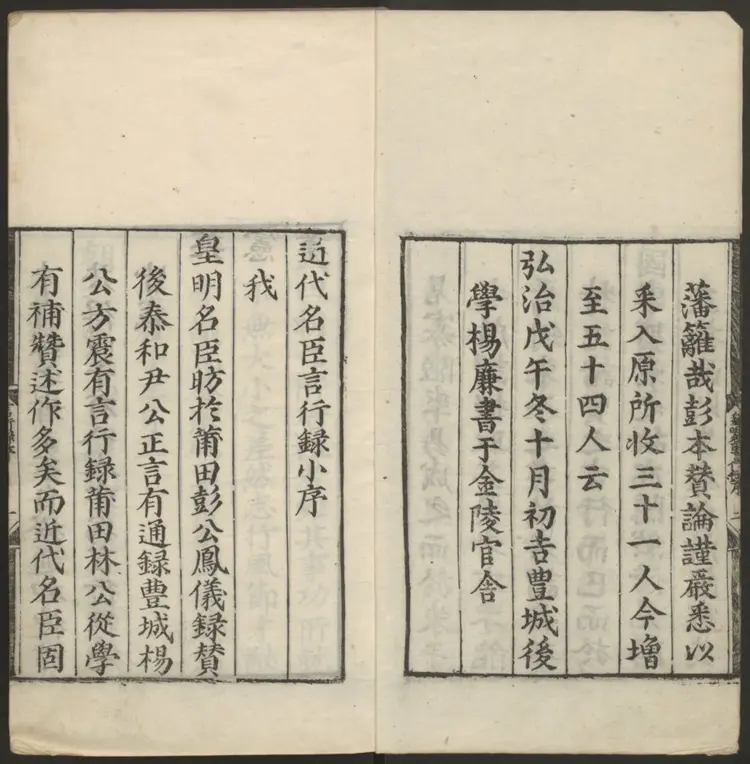 藩籬哉彭本贊論謹嚴悉以
采入原所收三十一人今增
至五十四人云
弘治戊午冬十月初吉豊城後
學楊廉書于金陵官舍
近代名臣言行録小序
我
皇明名臣昉於莆田彭公鳳儀録賛
後泰和尹公正言有通録豊城楊
公方震有言行録莆田林公從學
有補贊述作多矣而近代名臣固